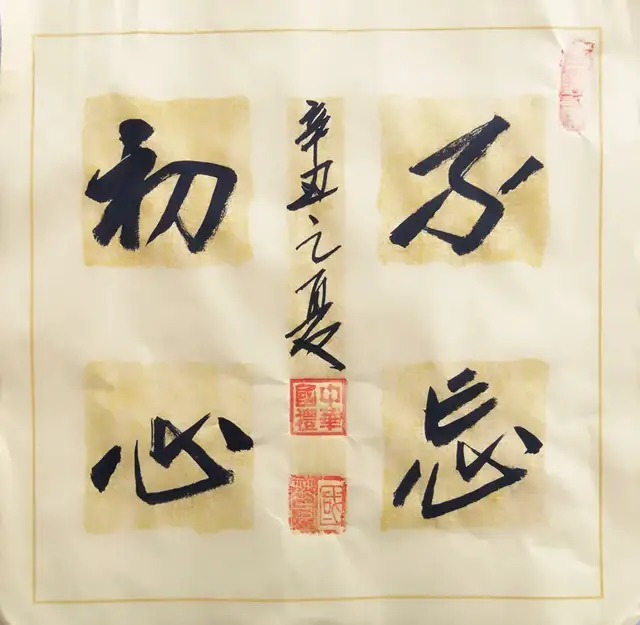 不忘
初心
辛丑之夏
中華
國禮